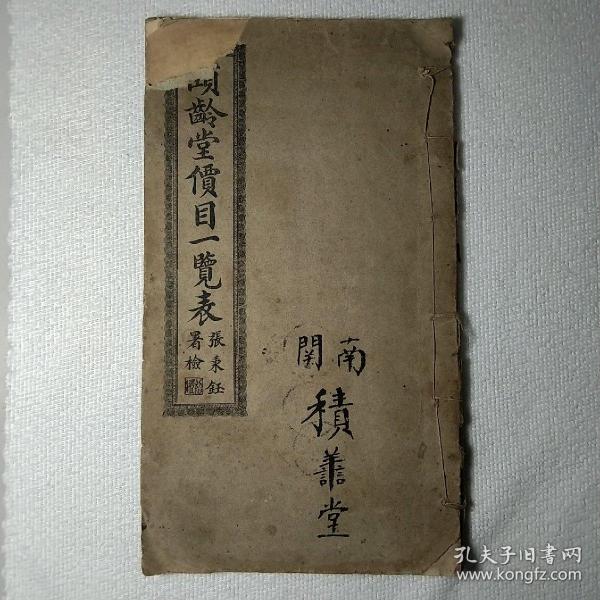 頤齡堂價目一覽表
張秉鈺
署檢
南関
積善堂
孔夫子旧书网
www.kongfz.com